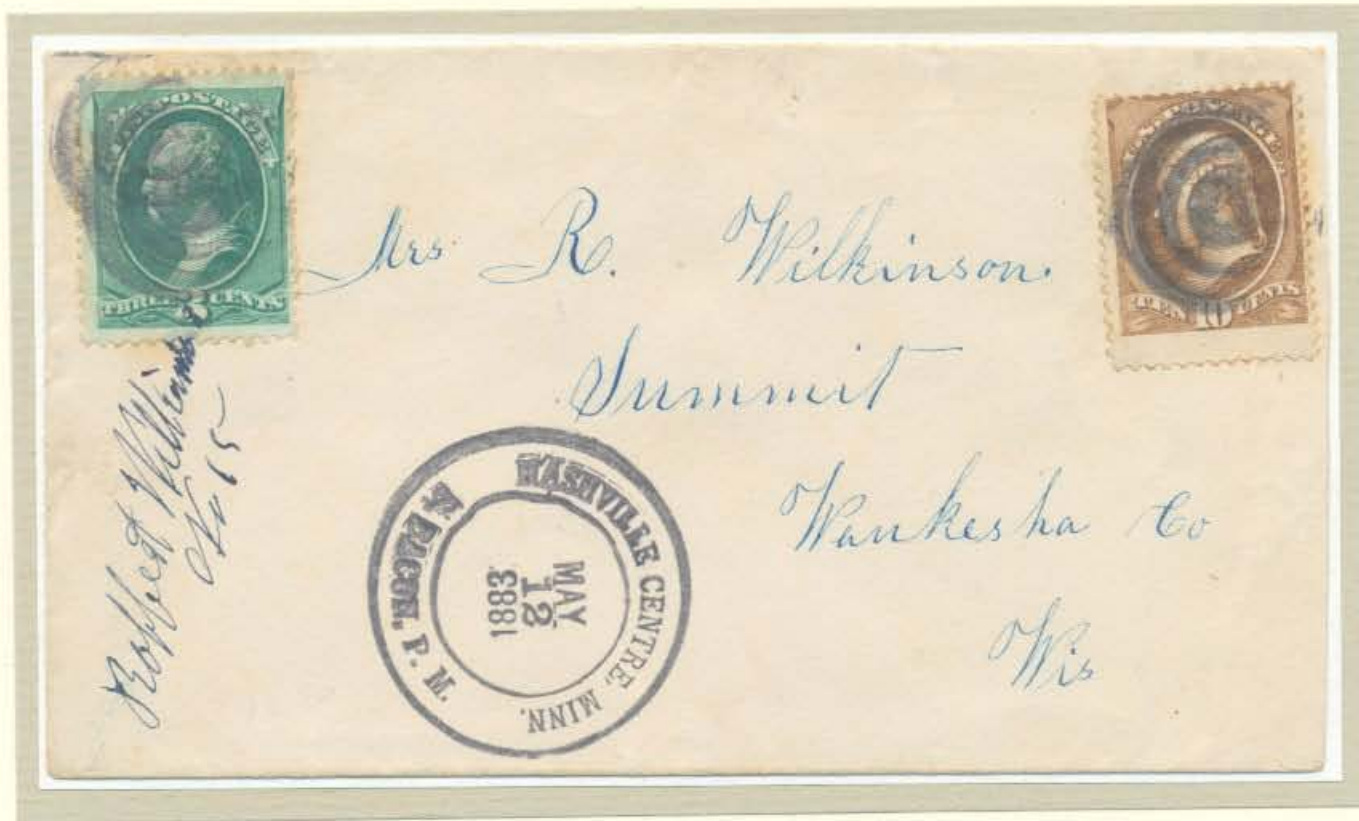 U.S. POSTAGE
THREE 3 CENTS
U.S. POSTAGE
TEN 10 CENTS
Mrs R. Wilkinson.
Summit
Waukesha Co
Wis
No 15
NASHVILLE CENTRE, MINN.
MAY
12
1883
P. M.